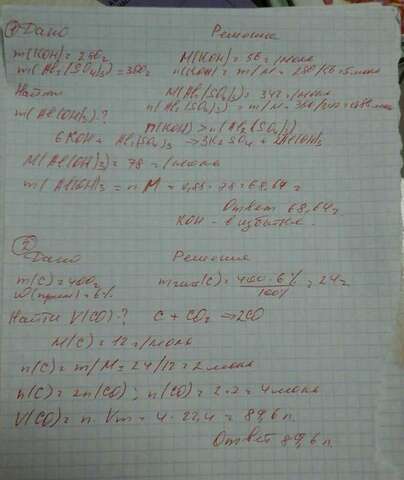 ① Дано Решение
m(KOH) = 250г M(KOH) = 56 г/моль
m(Al₂(SO₄)₃) = 300г n(KOH) = m/M = 280/56 = 5 моль
Найти M(Al₂(SO₄)₃) = 342 г/моль
m(Al(OH)₃)? n(Al₂(SO₄)₃) = m/M = 300/342 = 0,88 моль
n(KOH) > n(Al₂(SO₄)₃)
6KOH + Al₂(SO₄)₃ → 3K₂SO₄ + 2Al(OH)₃
M(Al(OH)₃) = 78 г/моль
m(Al(OH)₃ = n M = 0,88 · 78 = 68,64 г
Ответ 68,64 г
KOH - в избытке.
② Дано Решение
m(C) = 400г m чист(C) = 400 · 6% / 100% = 24 г
ω(прим) = 6%
Найти V(CO)? C + CO₂ → 2CO
M(C) = 12 г/моль
n(C) = m/M = 24/12 = 2 моль
n(C) = 2n(CO); n(CO) = 2 · 2 = 4 моль
V(CO) = n · Vm = 4 · 22,4 = 89,6 л.
Ответ 89,6 л.